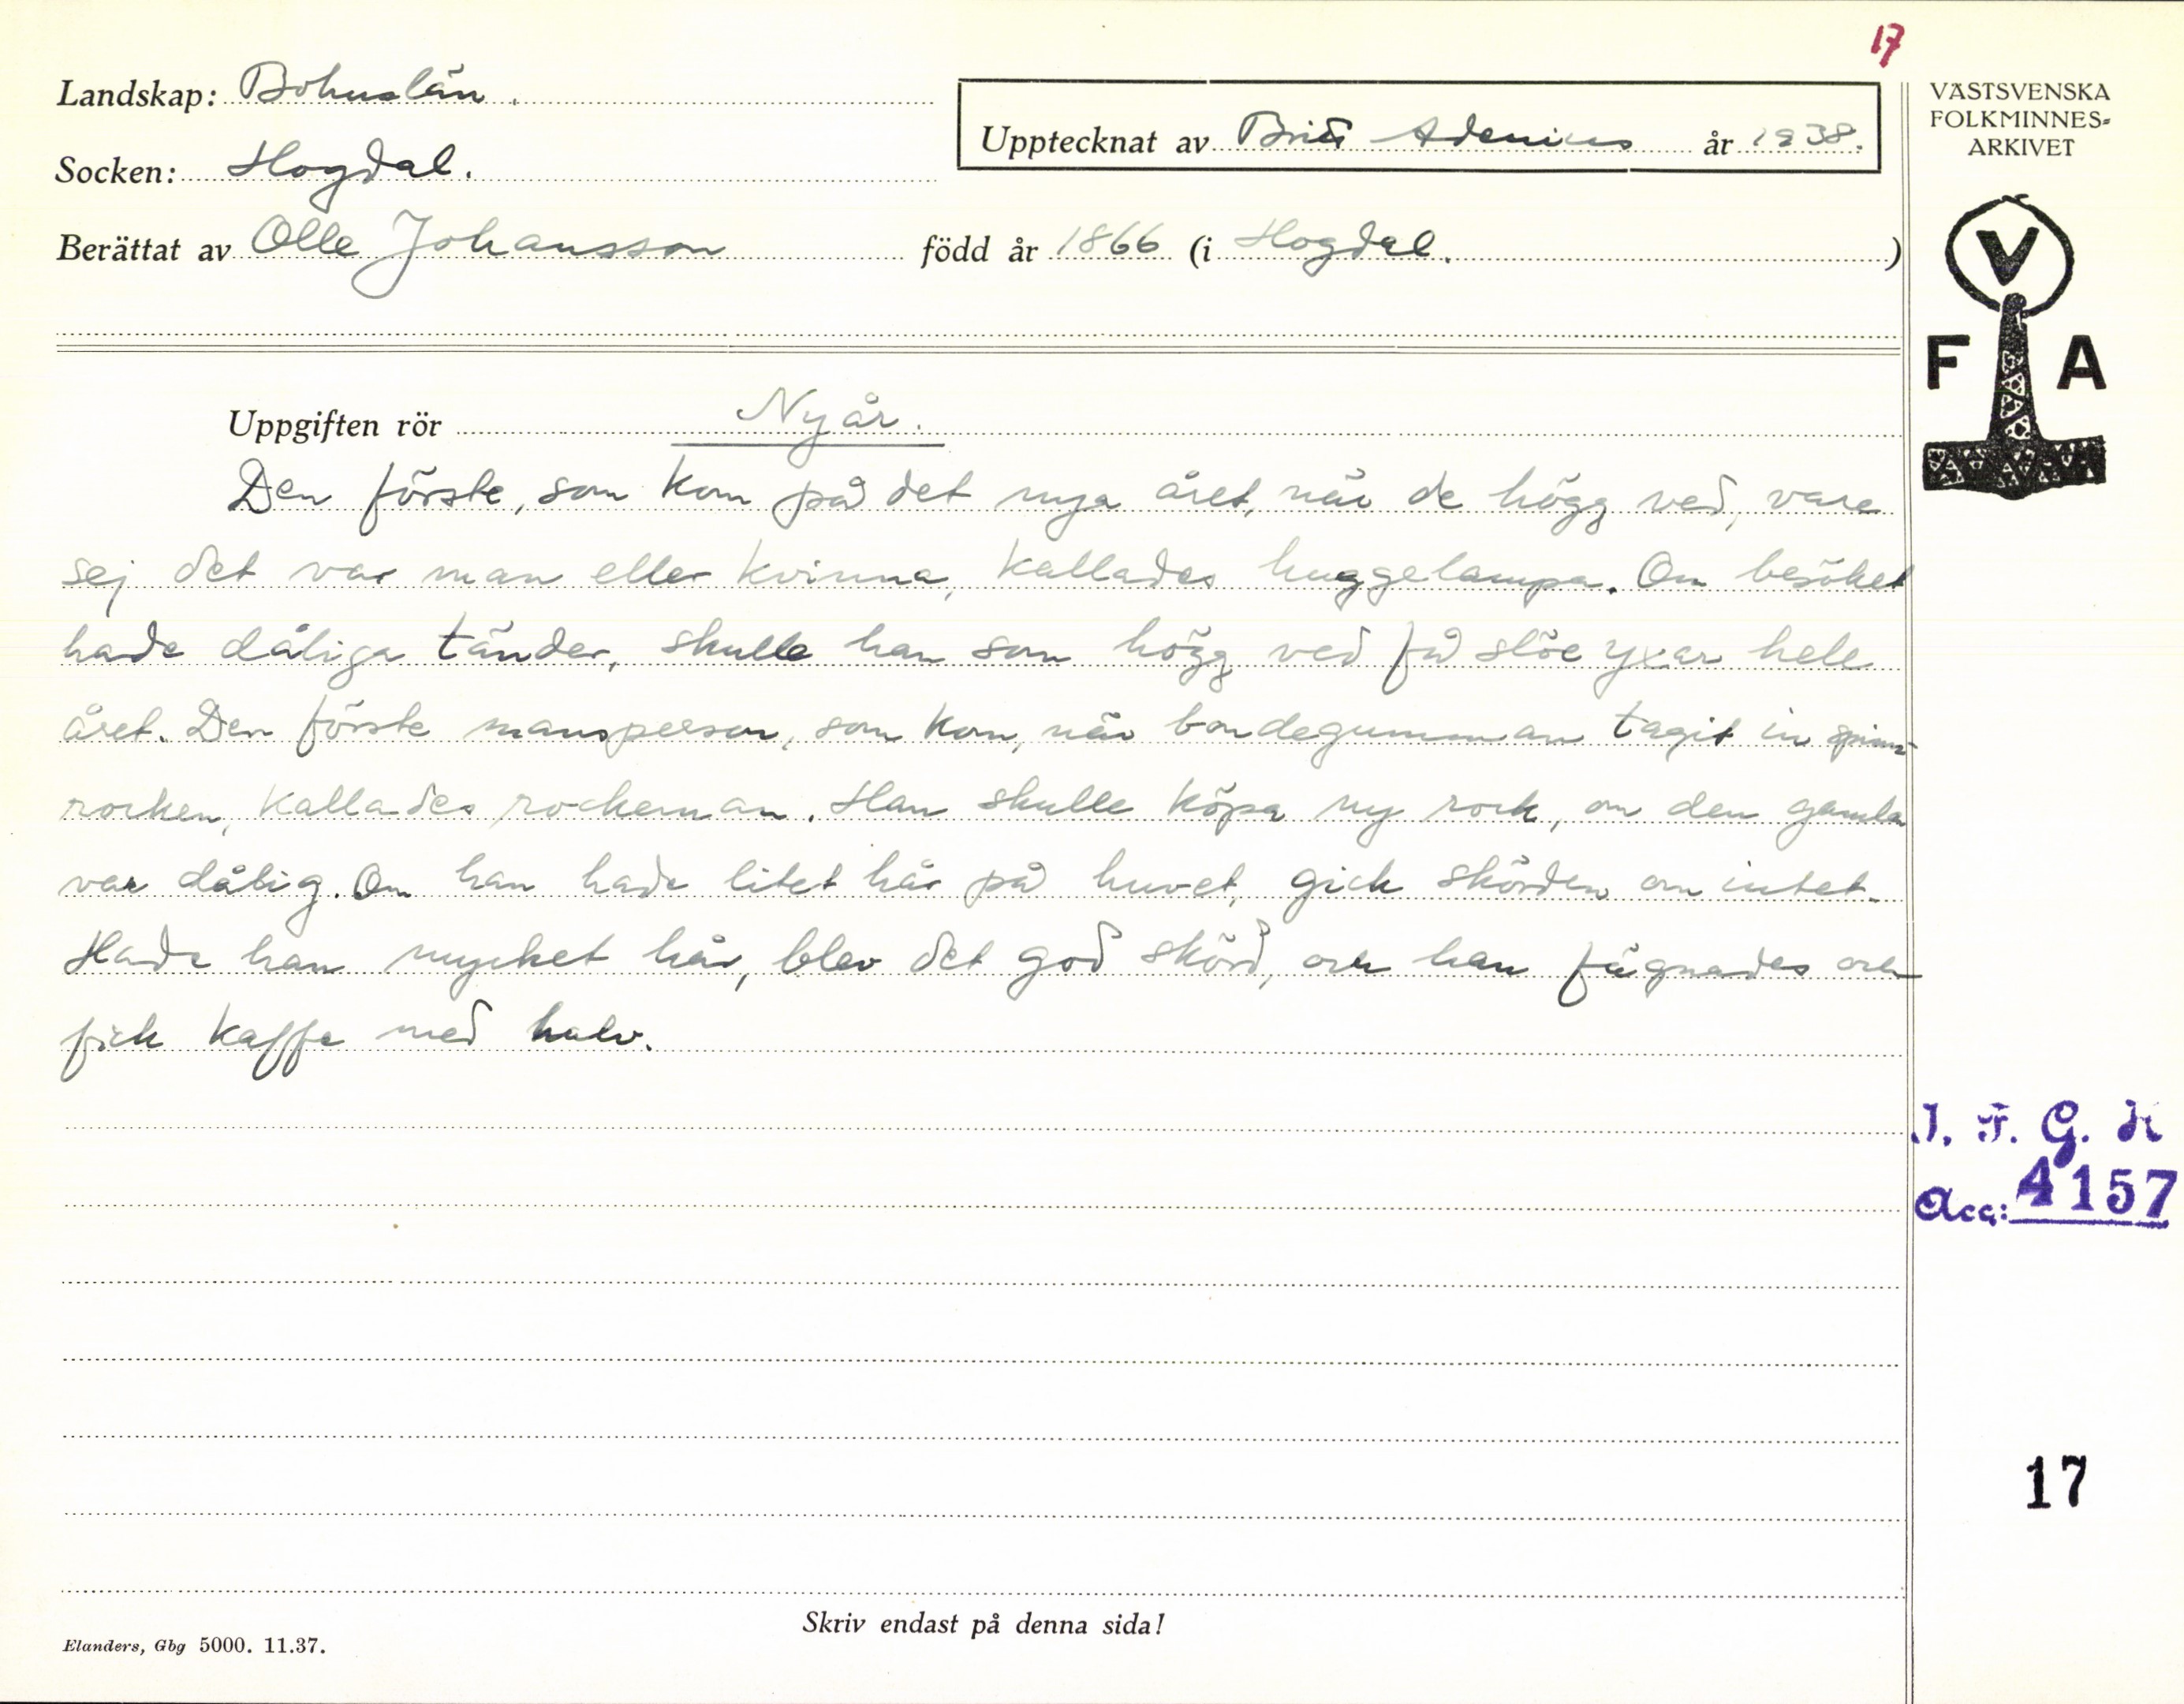 17
Landskap: Bohuslän.
Upptecknat av Brita Adenius år 1938.
VÄSTSVENSKA
FOLKMINNES=
ARKIVET
Socken: Hogdal.
Berättat av Olle Johansson född år 1866 (i Hogdal.)
V
F A
Uppgiften rör Nyår.
Den förste, som kom på det nya året, när de högg ved, vare
sej det var man eller kvinna, kallades huggelampa. Om besöket
hade dåliga tänder, skulle han som högg ved få slöe yxar hele
året. Den förste mansperson, som kom, när bondegumman tagit in spinn-
rocken, kallades rockeman. Han skulle köpa ny rock, om den gamla
var dålig. Om han hade litet hår på huvet, gick skörden om intet.
Hade han mycket hår, blev det god skörd, och han fägnades och
fick kaffe med halv.
I. F. G. H
Acc: 4157
17
Skriv endast på denna sida!
Elanders, Gbg 5000. 11.37.